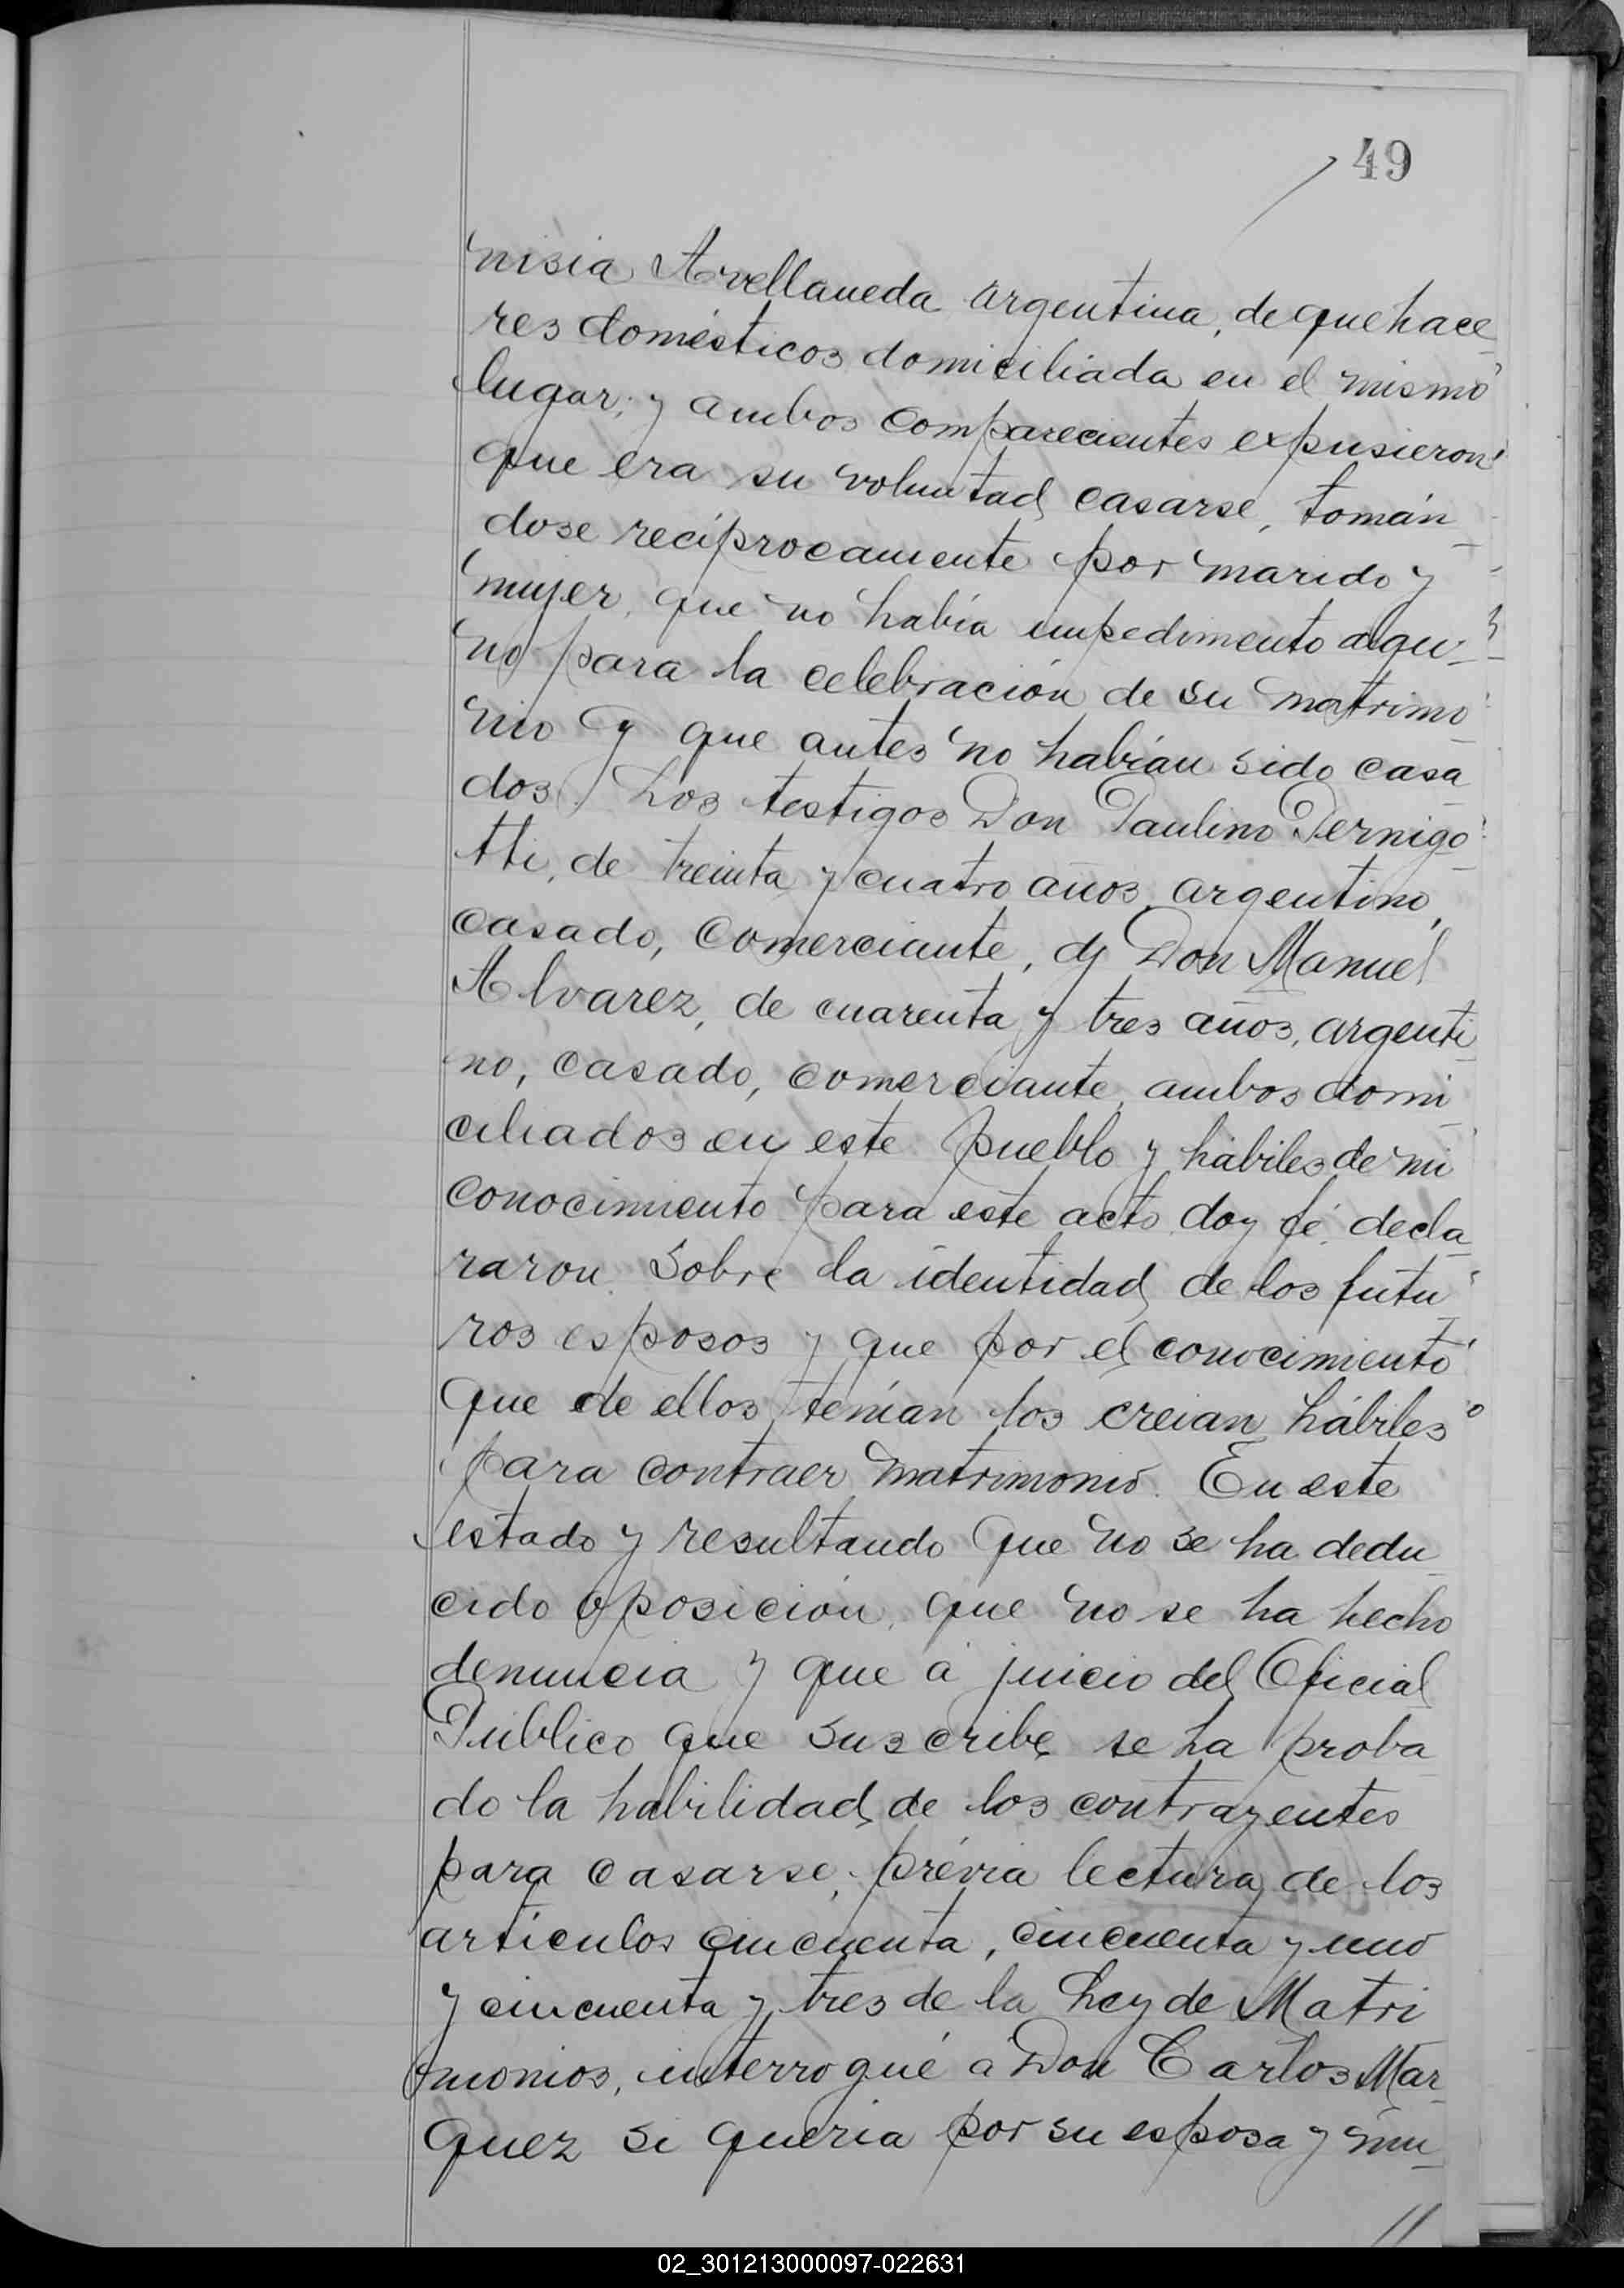 49
nisia Avellaneda argentina, de quehace
res domésticos domiciliada en el mismo
lugar; y ambos comparecientes expusieron
que era su voluntad casarse, tomán
dose recíprocamente por marido y
mujer, que no había impedimento algu-
no para la celebración de su matrimo
nio y que antes no habían sido casa
dos. Los testigos Don Paulino Pernigo
tti, de treinta y cuatro años, argentino,
casado, comerciante, y Don Manuel
Alvarez, de cuarenta y tres años, argenti
no, casado, comerciante, ambos domi
ciliados en este pueblo y hábiles de mi
conocimiento para este acto doy fé, decla
raron sobre la identidad de los futu
ros esposos y que por el conocimiento
que de ellos tenían los creian hábiles
para contraer matrimonio. En este
estado y resultando que no se ha dedu
cido oposición, que no se ha hecho
denuncia y que á juicio del Oficial
Público que suscribe se ha proba
do la habilidad de los contrayentes
para casarse, prévia lectura de los
artículos cincuenta, cincuenta y uno
y cincuenta y tres de la Ley de Matri
monios, interrogué á Don Carlos Mar
quez si queria por su esposa y mu
02_301213000097-022631